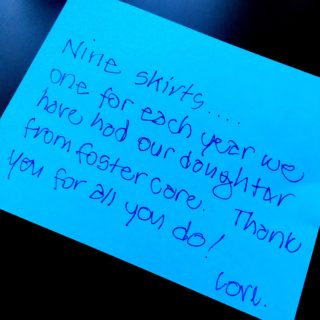 Nine skirts....
one for each year we
have had our daughter
from foster care. Thank
you for all you do!